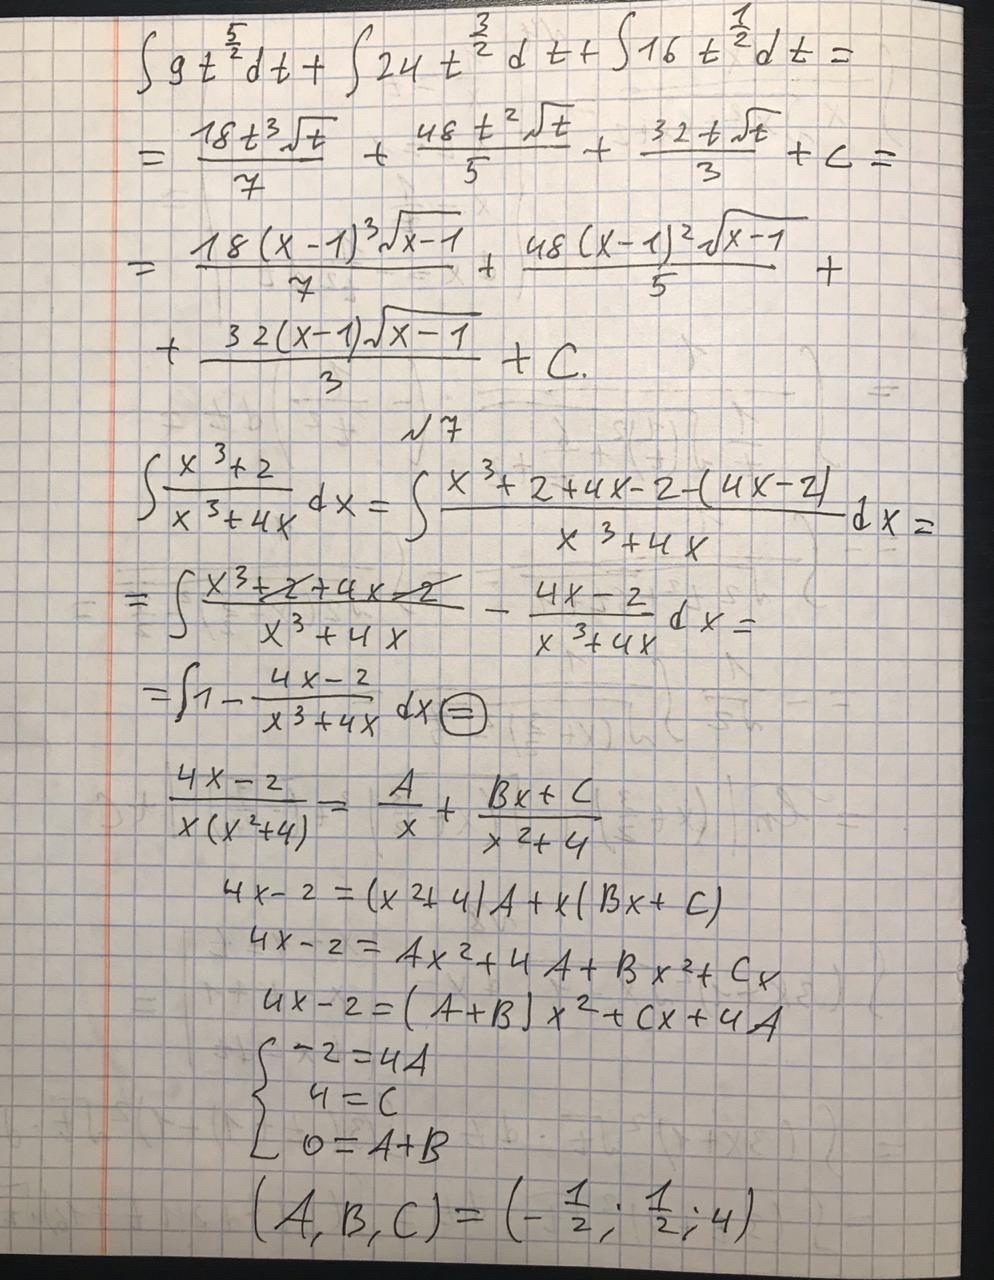 ∫9t^{5/2}dt + ∫24t^{3/2}dt + ∫16t^{1/2}dt =
= \frac{18t^3√t}{7} + \frac{48t^2√t}{5} + \frac{32t√t}{3} + C =
= \frac{18(x-1)^3√{x-1}}{7} + \frac{48(x-1)^2√{x-1}}{5} +
+ \frac{32(x-1)√{x-1}}{3} + C.
√7
∫\frac{x^3+2}{x^3+4x}dx = ∫\frac{x^3+2+4x-2-(4x-2)}{x^3+4x}dx =
= ∫\frac{x^3+2+4x-2}{x^3+4x} - \frac{4x-2}{x^3+4x}dx =
= ∫1 - \frac{4x-2}{x^3+4x}dx =
\frac{4x-2}{x(x^2+4)} = \frac{A}{x} + \frac{Bx+C}{x^2+4}
4x-2 = (x^2+4)A + x(Bx+C)
4x-2 = Ax^2+4A+Bx^2+Cx
4x-2 = (A+B)x^2+Cx+4A
-2 = 4A
4 = C
0 = A+B
(A, B, C) = (-\frac{1}{2}; \frac{1}{2}; 4)